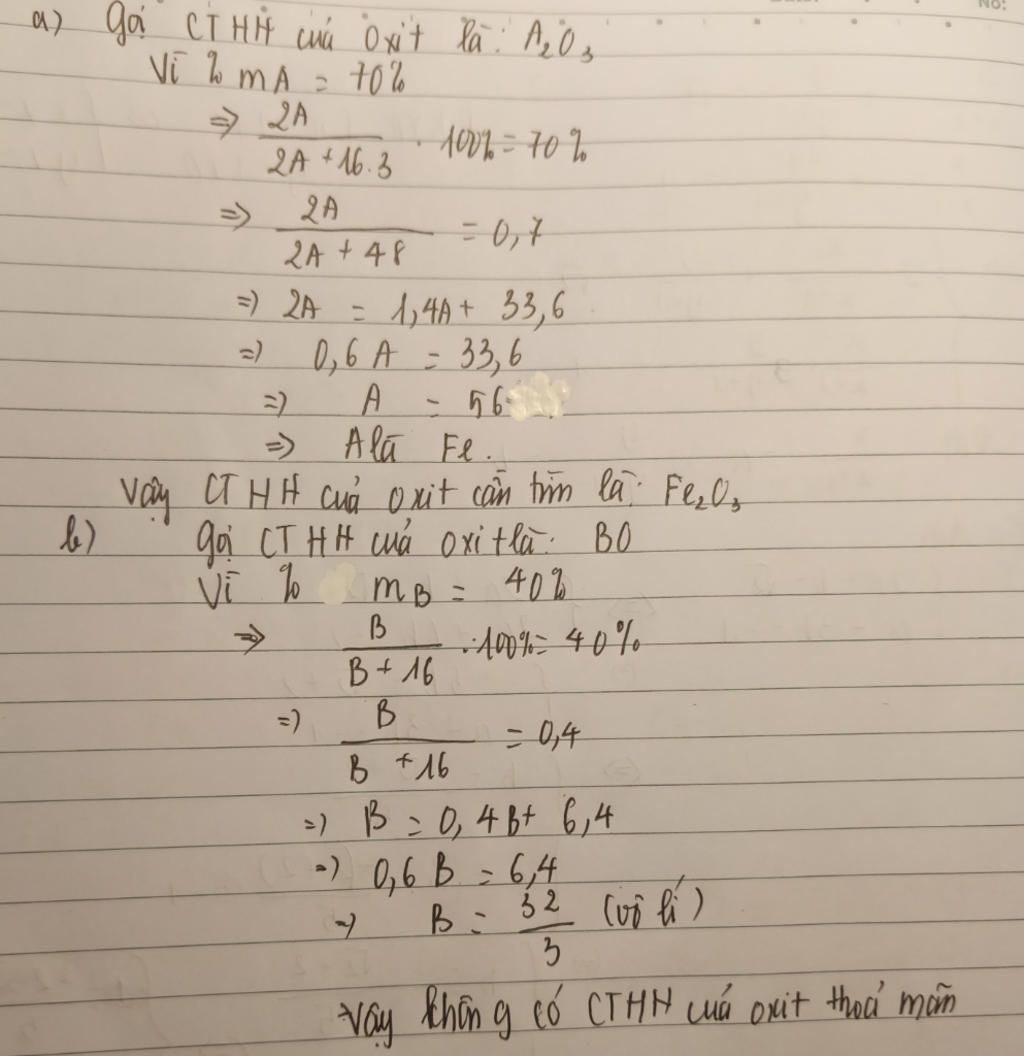 No:
a) Gọi CTHH của oxit là: A₂O₃
Vì % mA = 70%
=> 2A / (2A + 16.3) . 100% = 70%
=> 2A / (2A + 48) = 0,7
=> 2A = 1,4A + 33,6
=> 0,6 A = 33,6
=> A = 56
=> A là Fe.
Vậy CTHH của oxit cần tìm là: Fe₂O₃
b) Gọi CTHH của oxit là: BO
Vì % mB = 40%
=> B / (B + 16) . 100% = 40%
=> B / (B + 16) = 0,4
=> B = 0,4B + 6,4
=> 0,6 B = 6,4
=> B = 32 / 3 (vô lí)
Vậy không có CTHH của oxit thoả mãn